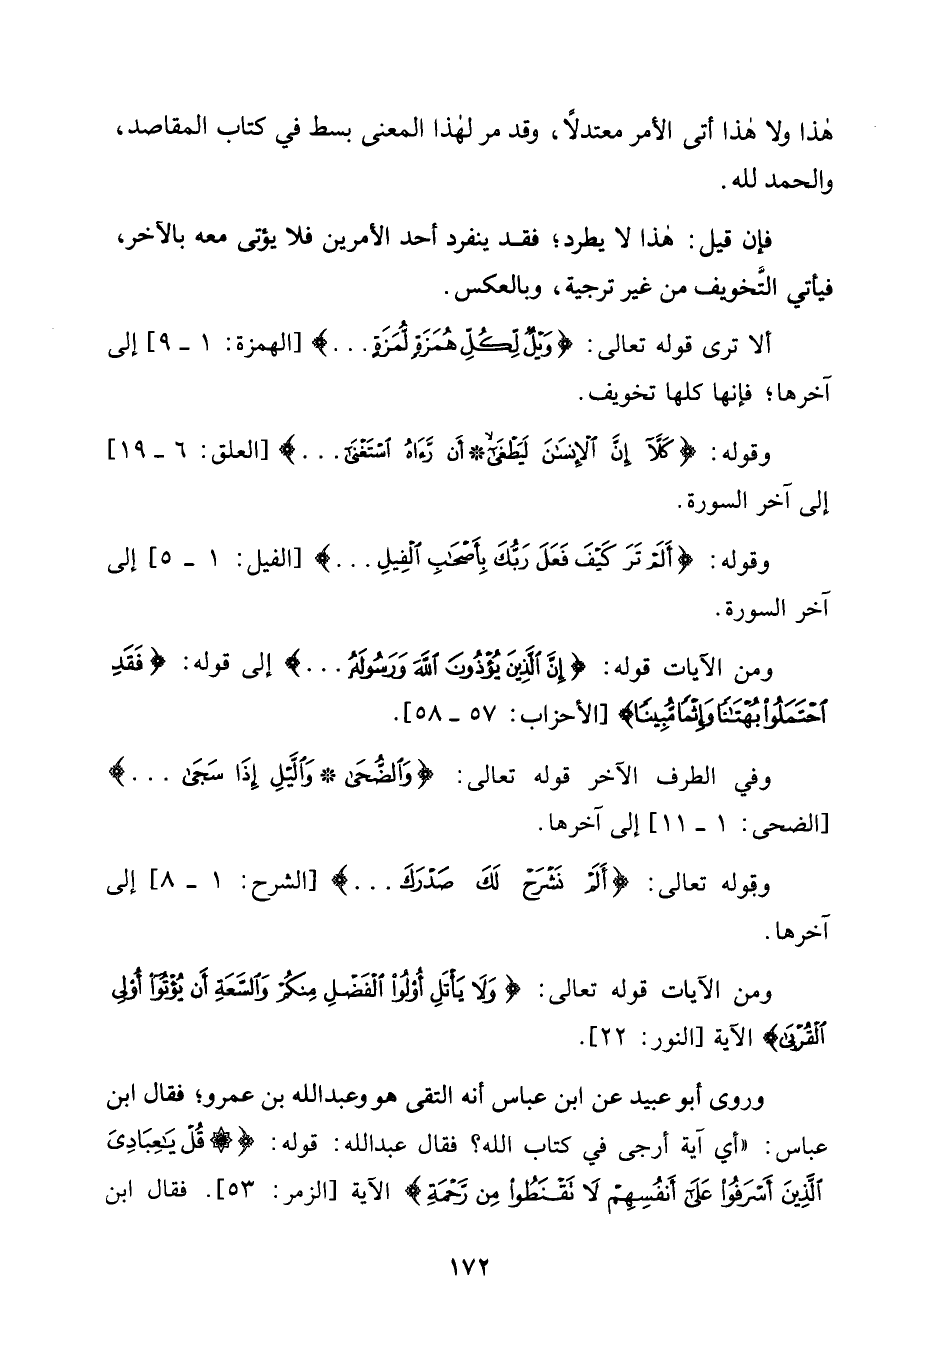 هٰذا ولا هٰذا أتى الأمر معتدلًا، وقد مر لهٰذا المعنى بسط في كتاب المقاصد،
والحمد لله.
فإن قيل: هٰذا لا يطرد؛ فقد ينفرد أحد الأمرين فلا يؤتى معه بالآخر،
فيأتي التَّخويف من غير ترجية، وبالعكس.
ألا ترى قوله تعالى: ﴿وَيْلٌ لِّكُلِّ هُمَزَةٍ لُّمَزَةٍ...﴾ [الهمزة: ١ - ٩] إلى
آخرها؛ فإنها كلها تخويف.
وقوله: ﴿كَلَّآ إِنَّ ٱلْإِنسَٰنَ لَيَطْغَىٰٓ * أَن رَّءَاهُ ٱسْتَغْنَىٰٓ...﴾ [العلق: ٦ - ١٩]
إلى آخر السورة.
وقوله: ﴿أَلَمْ تَرَ كَيْفَ فَعَلَ رَبُّكَ بِأَصْحَٰبِ ٱلْفِيلِ...﴾ [الفيل: ١ - ٥] إلى
آخر السورة.
ومن الآيات قوله: ﴿إِنَّ ٱلَّذِينَ يُؤْذُونَ ٱللَّهَ وَرَسُولَهُۥ...﴾ إلى قوله: ﴿فَقَدِ
ٱحْتَمَلُوا۟ بُهْتَٰنًا وَإِثْمًا مُّبِينًا﴾ [الأحزاب: ٥٧ - ٥٨].
وفي الطرف الآخر قوله تعالى: ﴿وَٱلضُّحَىٰ * وَٱلَّيْلِ إِذَا سَجَىٰ...﴾
[الضحى: ١ - ١١] إلى آخرها.
وقوله تعالى: ﴿أَلَمْ نَشْرَحْ لَكَ صَدْرَكَ...﴾ [الشرح: ١ - ٨] إلى
آخرها.
ومن الآيات قوله تعالى: ﴿وَلَا يَأْتَلِ أُو۟لُوا۟ ٱلْفَضْلِ مِنكُمْ وَٱلسَّعَةِ أَن يُؤْتُوٓا۟ أُو۟لِى
ٱلْقُرْبَىٰ﴾ الآية [النور: ٢٢].
وروى أبو عبيد عن ابن عباس أنه التقى هو وعبدالله بن عمرو؛ فقال ابن
عباس: «أي آية أرجى في كتاب الله؟ فقال عبدالله: قوله: ﴿۞ قُلْ يَٰعِبَادِىَ
ٱلَّذِينَ أَسْرَفُوا۟ عَلَىٰٓ أَنفُسِهِمْ لَا تَقْنَطُوا۟ مِن رَّحْمَةِ﴾ الآية [الزمر: ٥٣]. فقال ابن
١٧٢